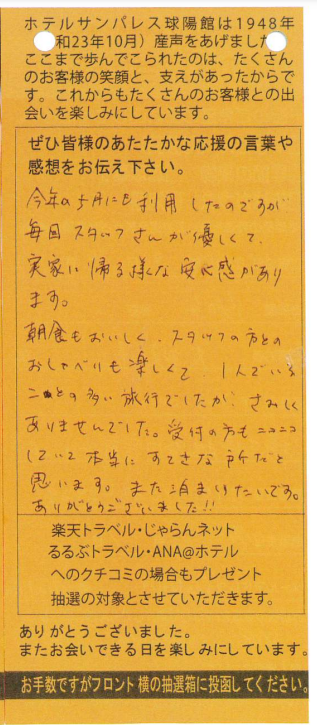 ホテルサンパレス球陽館は1948年
和23年10月）産声をあげました
ここまで歩んでこられたのは、たくさん
のお客様の笑顔と、支えがあったからで
す。これからもたくさんのお客様との出
会いを楽しみにしています。
ぜひ皆様のあたたかな応援の言葉や
感想をお伝え下さい。
今年の5月にも利用したのですが
毎回スタッフさんが優しくて、
実家に帰る様な安心感があり
ます。
朝食もおいしく、スタッフの方との
おしゃべりも楽しくて 1人でいる
ことの多い旅行でしたが、さみしく
ありませんでした。受付の方もニコニコ
していて本当にすてきな所だと
思います。また泊まりたいです。
ありがとうございました!!
楽天トラベル・じゃらんネット
るるぶトラベル・ANA@ホテル
へのクチコミの場合もプレゼント
抽選の対象とさせていただきます。
ありがとうございました。
またお会いできる日を楽しみにしています。
お手数ですがフロント横の抽選箱に投函してください。